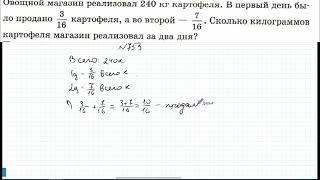 Овощной магазин реализовал 240 кг картофеля. В первый день бы-
ло продано 3/16 картофеля, а во второй — 7/16. Сколько килограммов
картофеля магазин реализовал за два дня?
№753
Всего: 240к
1д - 3/16 всего к.
2д - 7/16 всего к
1) 3/16 + 7/16 = 3+7/16 = 10/16 - продал